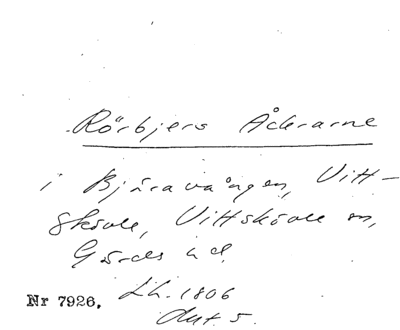 Rörbjers Åckrarne
i Bjäravången, Vitt-
skövle, Vittskövle sn,
Gärds hd.
Nr 7926. Lh. 1806
Akt. 5.